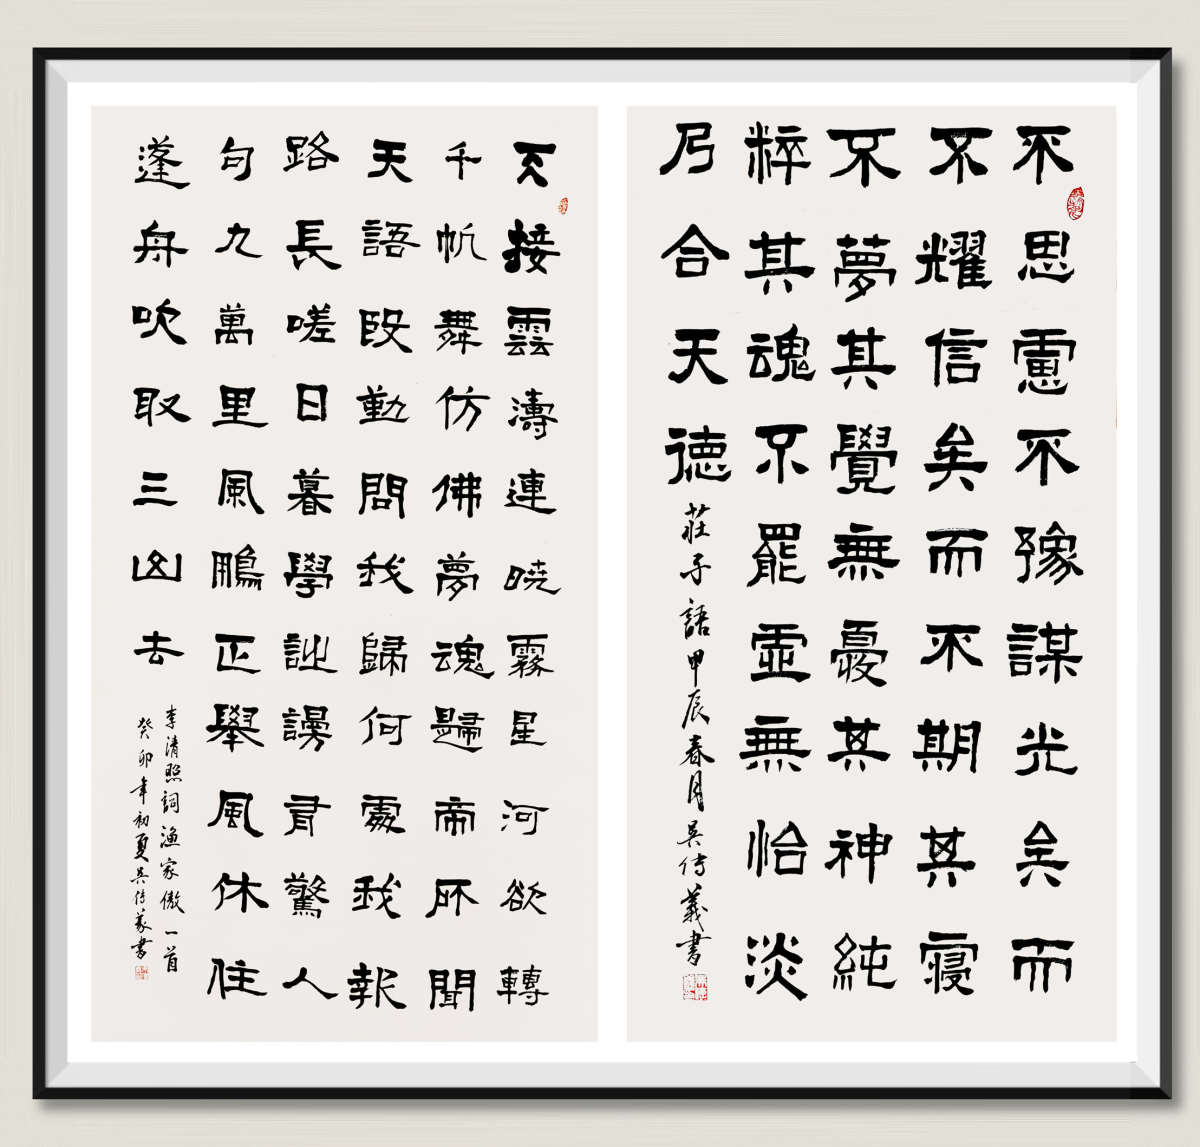 不思慮不豫謀光矣而
不耀信矣而不期其寢
不夢其覺無憂其神純
粹其魂不罷虛無怡淡
乃合天德
莊子語甲辰春月吳传義書
天接雲濤連曉霧星河欲轉
千帆舞仿佛夢魂歸帝所聞
天語殷勤問我歸何處我報
路長嗟日暮學詩謾有驚人
句九萬里風鵬正舉風休住
蓬舟吹取三山去
李清照詞漁家傲一首
癸卯年初夏吳传義書